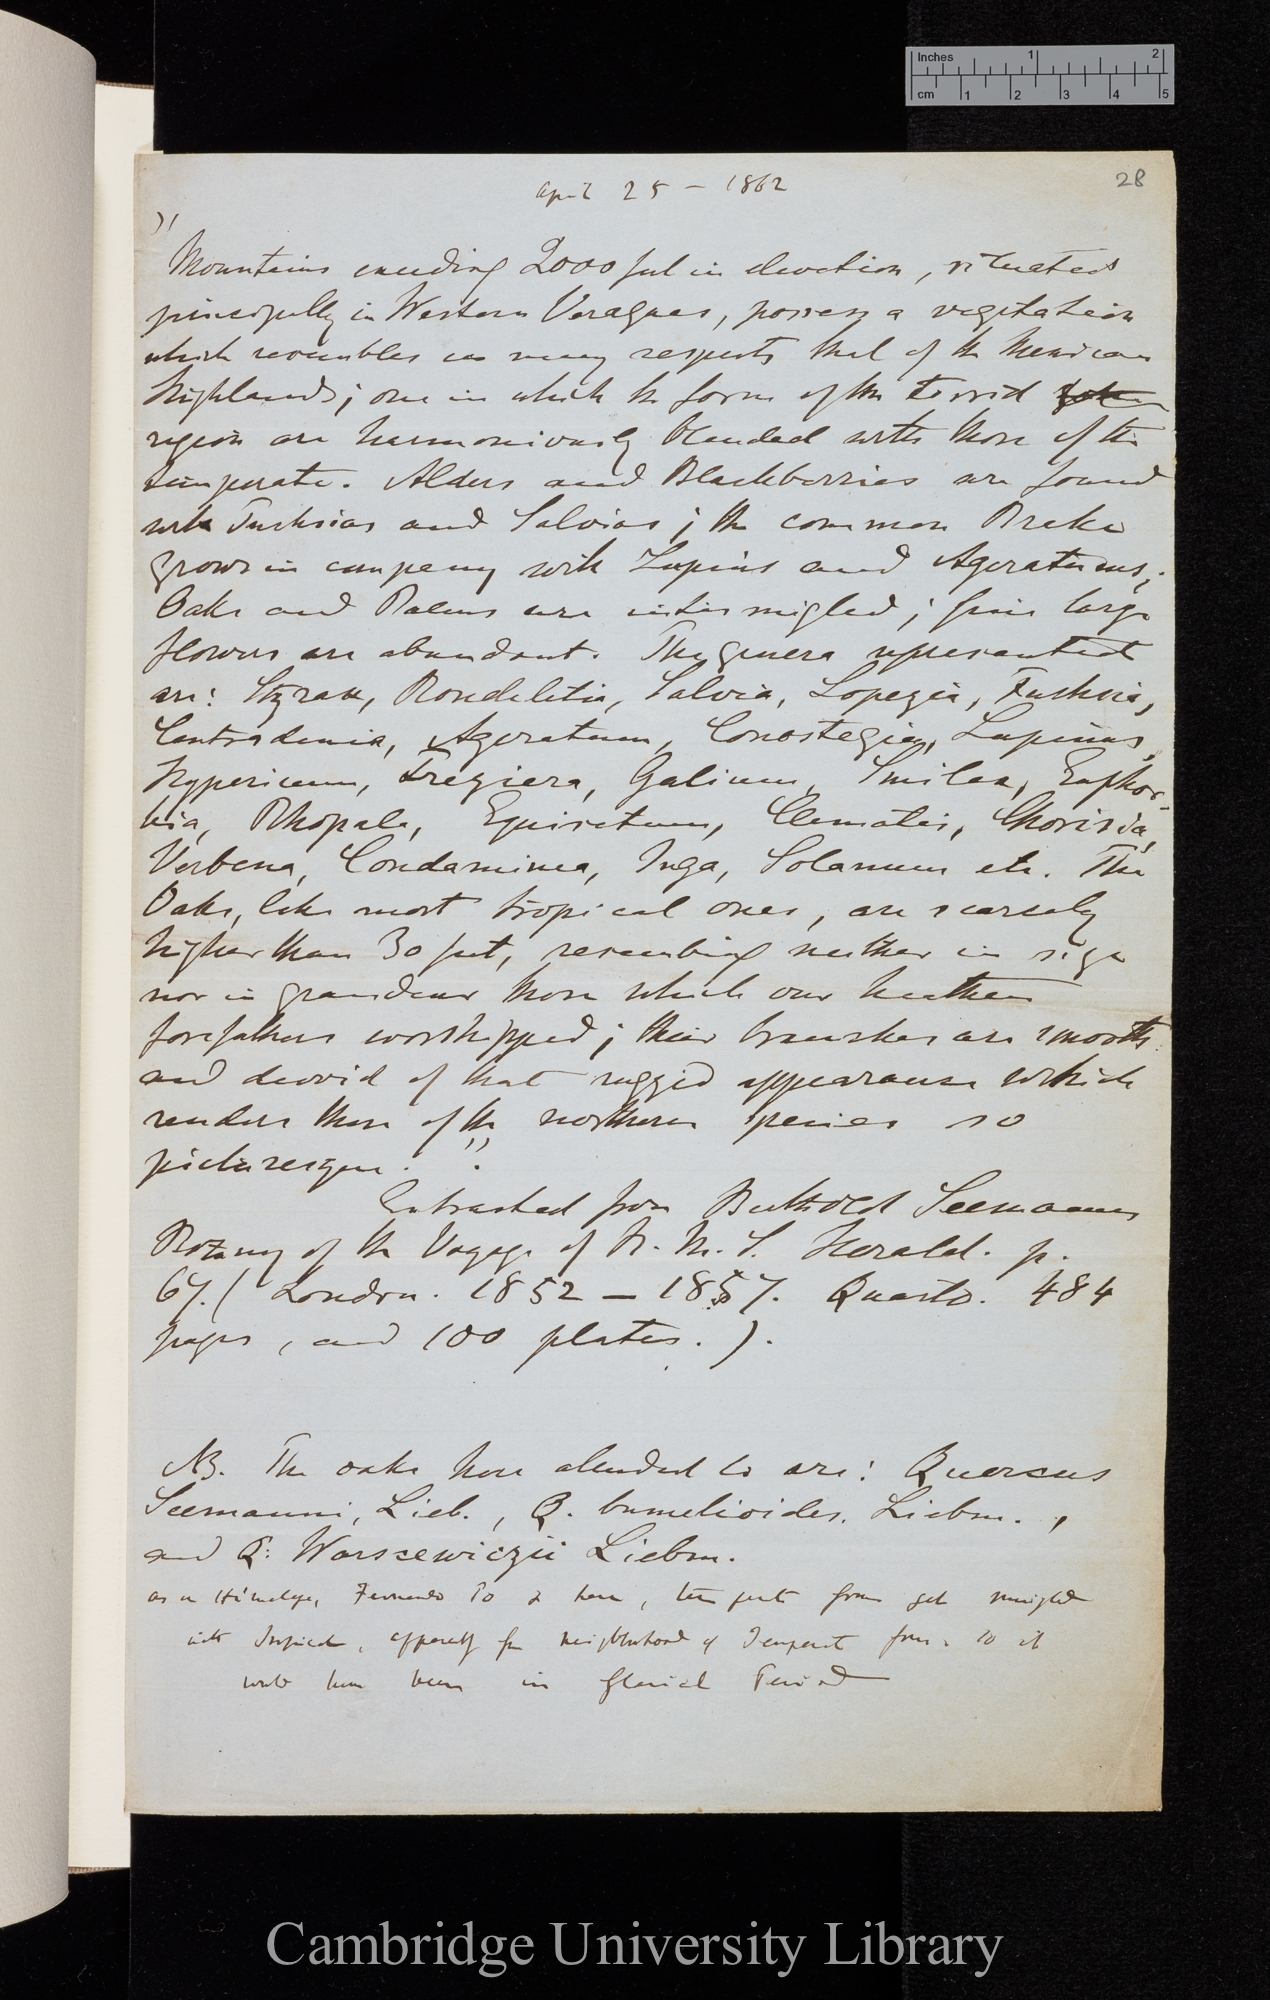 Inches 1 2
cm 1 2 3 4 5
April 25 – 1862
28
"
Mountains exceeding 2000 feet in elevation, situated
principally in Western Veraguas, possess a vegetation
which resembles in many respects that of the Mexican
highlands; one in which the forms of the torrid
region are harmoniously blended with those of the
temperate. Alders and Blackberries are found
with Fuchsias and Salvias; the common Brake
grows in company with Lupins and Ageratums;
Oaks and Palms are intermigled; finis large
flowers are abundant. The genera represented
are: Styrax, Rondeletia, Salvia, Lopezia, Fuchsia,
Centradenia, Ageratum, Conostegia, Lupinus,
Hypericum, Freziera, Galium, Smilax, Euphor-
bia, Rhopala, Equisetum, Clematis, Chorisia,
Verbena, Condaminea, Inga, Solanum etc. The
Oaks, like most tropical ones, are scarcely
higher than 30 feet, resembling neither in size
nor in grandeur those which our heathen
forefathers worshipped; their branches are smooth
and devoid of that rugged appearance which
renders those of the northern species so
picturesque."
Extracted from Berthold Seemanns
Botany of the Voyage of H.M.S. Herald. p.
67. (London. 1852 – 1857. Quarto. 484
pages, and 100 plates.).
NB. The oaks here aluded to are: Quercus
Seemanni, Lieb., Q. bumelioides, Liebm.,
and Q. Warscewiczii Liebm.
as in Himalaya, Fernando Po & here, temperate forms get mingled
with Tropical, apparently from neighbourhood of Temperate forms. so it
would have been in Glacial Period
Cambridge University Library